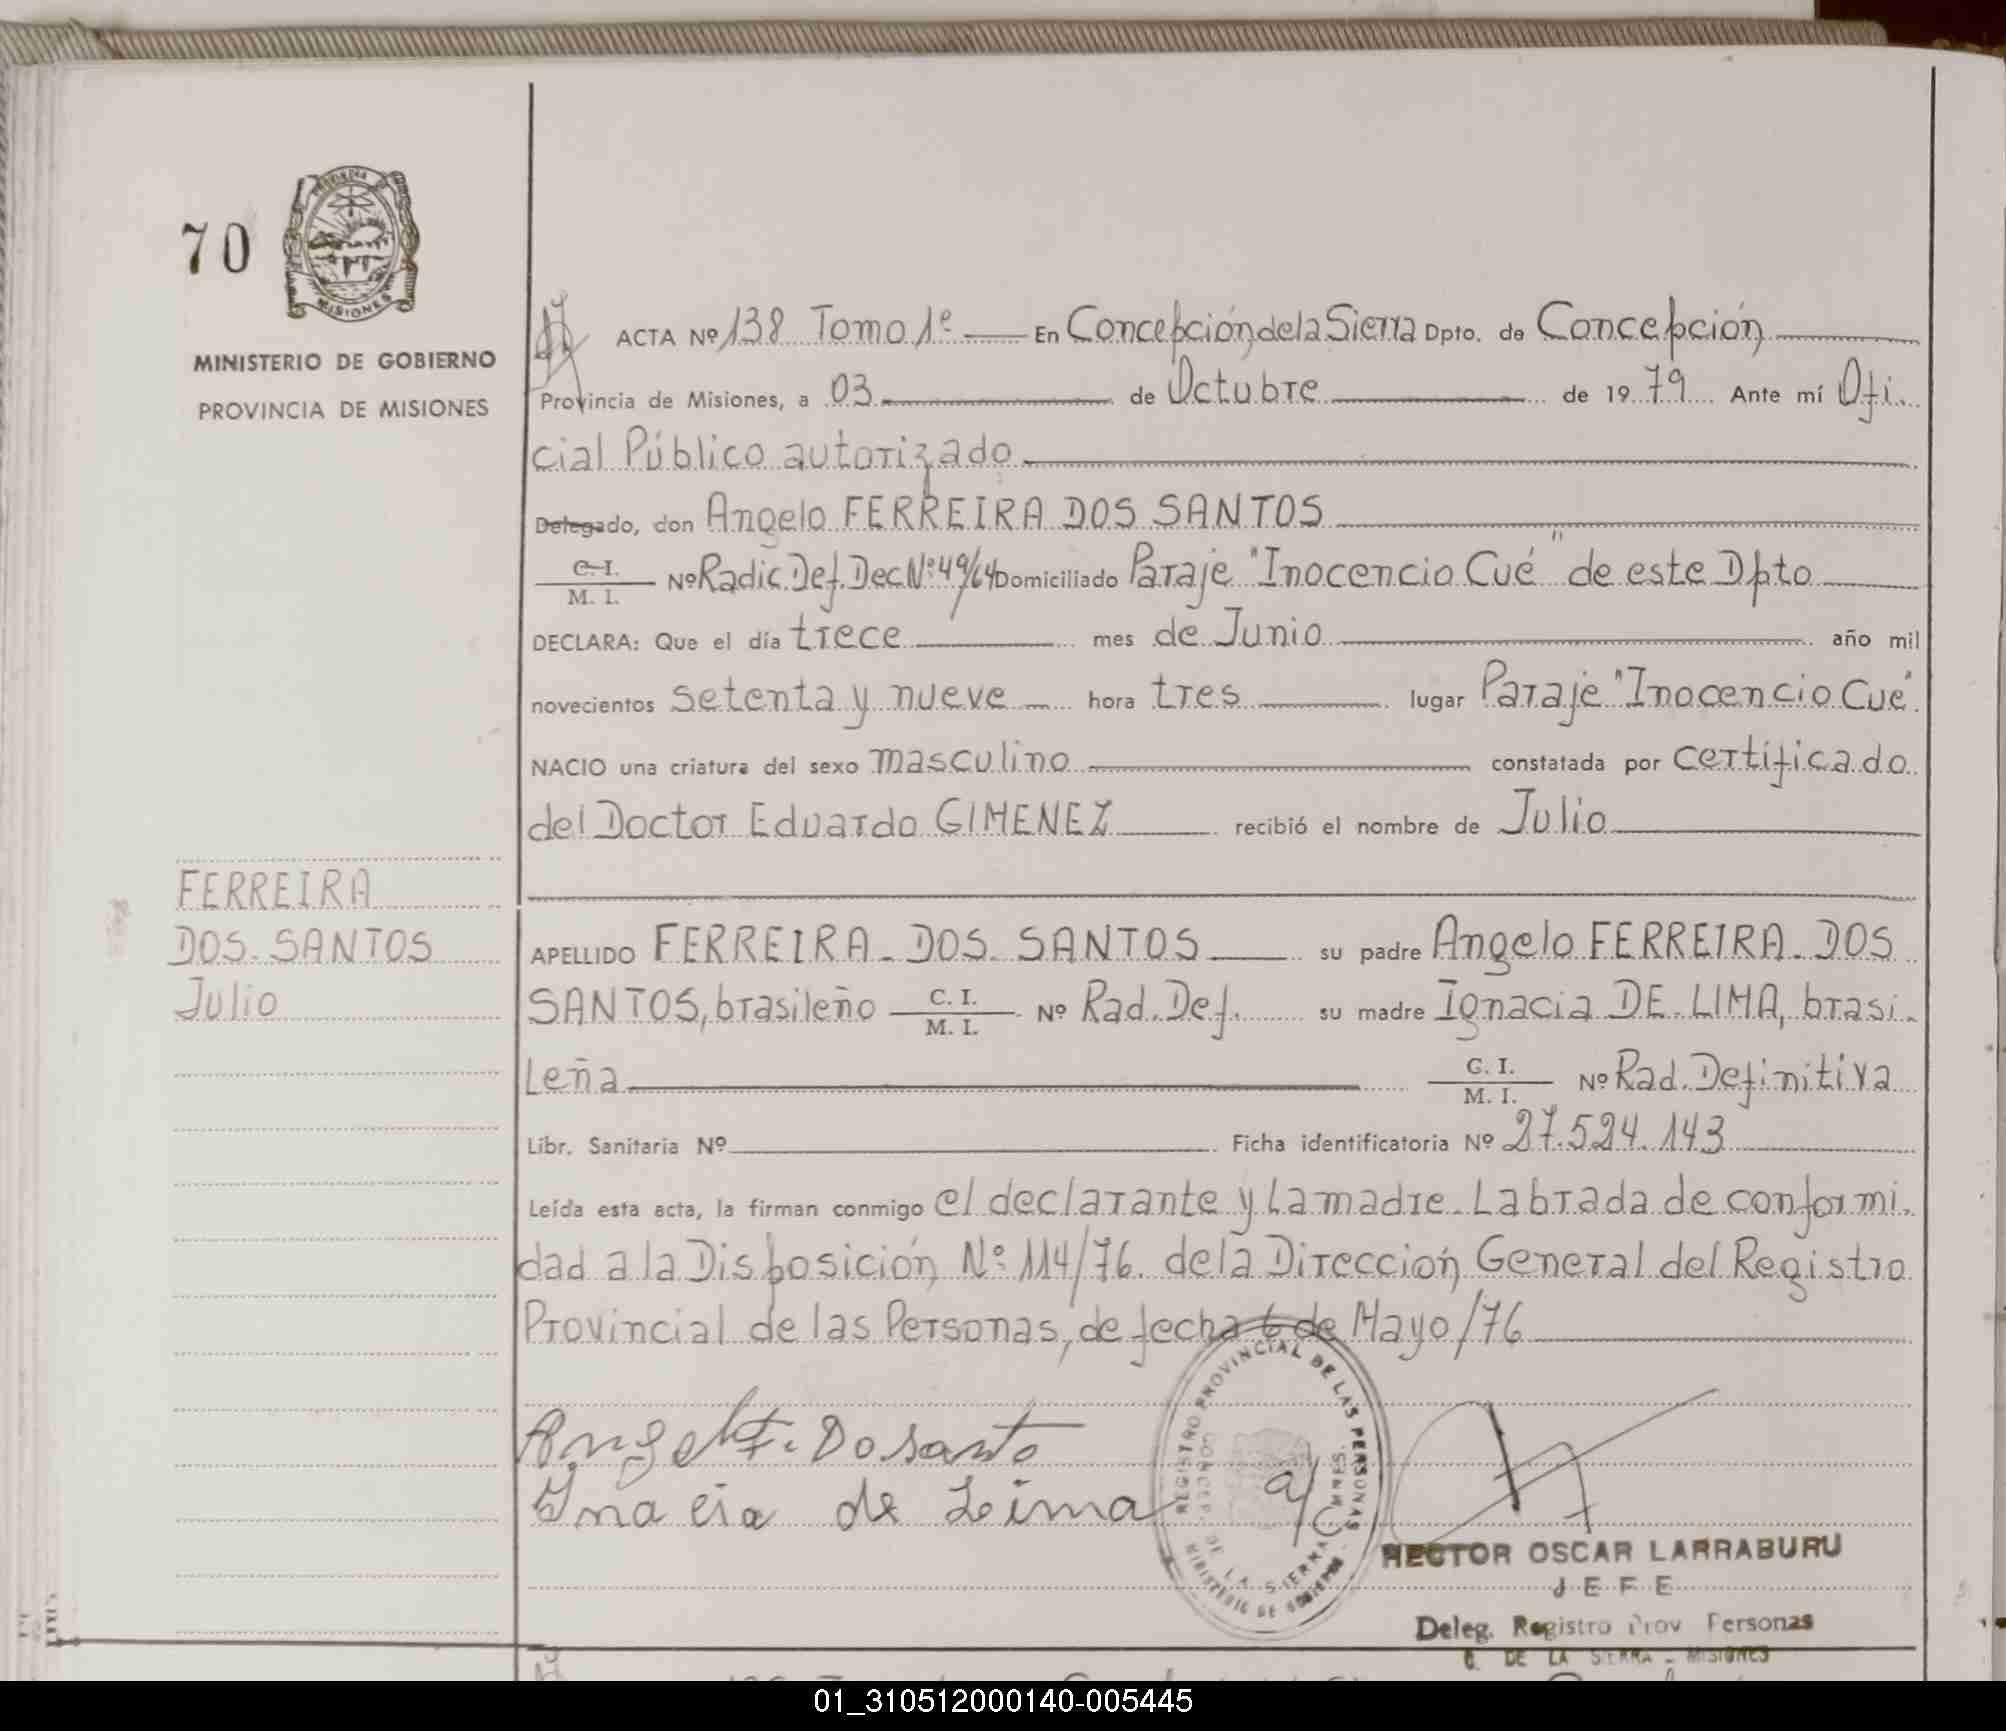 70
MISIONES
MINISTERIO DE GOBIERNO
PROVINCIA DE MISIONES
FERREIRA
DOS SANTOS
Julio
ACTA Nº 138 Tomo 1º En Concepción de la Sierra Dpto. de Concepción
Provincia de Misiones, a 03 de Octubre de 1979 Ante mí Ofi-
cial Público autorizado
Delegado, don Angelo FERREIRA DOS SANTOS
C. I. / M. I. Nº Radic. Def. Dec. Nº 49/64 Domiciliado Paraje "Inocencio Cué" de este Dpto
DECLARA: Que el día trece mes de Junio año mil
novecientos setenta y nueve hora tres lugar Paraje "Inocencio Cué"
NACIO una criatura del sexo masculino constatada por certificado
del Doctor Eduardo GIMENEZ recibió el nombre de Julio
APELLIDO FERREIRA DOS SANTOS su padre Angelo FERREIRA DOS
SANTOS, brasileño C. I. / M. I. Nº Rad. Def. su madre Ignacia DE LIMA, brasi-
leña C. I. / M. I. Nº Rad. Definitiva
Libr. Sanitaria Nº Ficha identificatoria Nº 27.524.143
Leída esta acta, la firman conmigo el declarante y la madre. Labrada de conformi-
dad a la Disposición Nº 114/76. de la Dirección General del Registro
Provincial de las Personas, de fecha 6 de Mayo/76
Angel F. Do santo
Ynacia de Leima
REGISTRO PROVINCIAL DE LAS PERSONAS
DE LA SIERRA MNES.
MINISTERIO DE GOBIERNO
a/c
HECTOR OSCAR LARRABURU
JEFE
Deleg. Registro Prov Personas
C. DE LA SIERRA - MISIONES
01_310512000140-005445